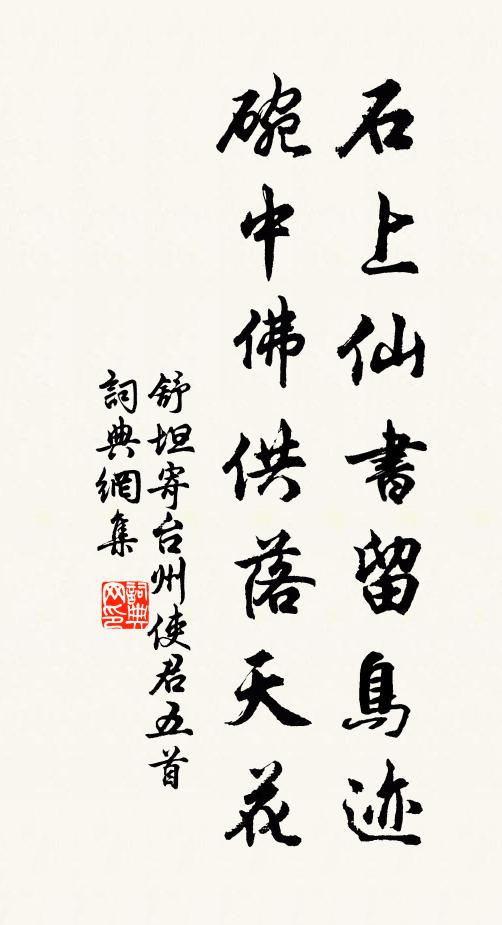 石上仙書留鳥迹
碗中佛供落天花
舒坦寄台州使君五首
詞典網集
詞典网印